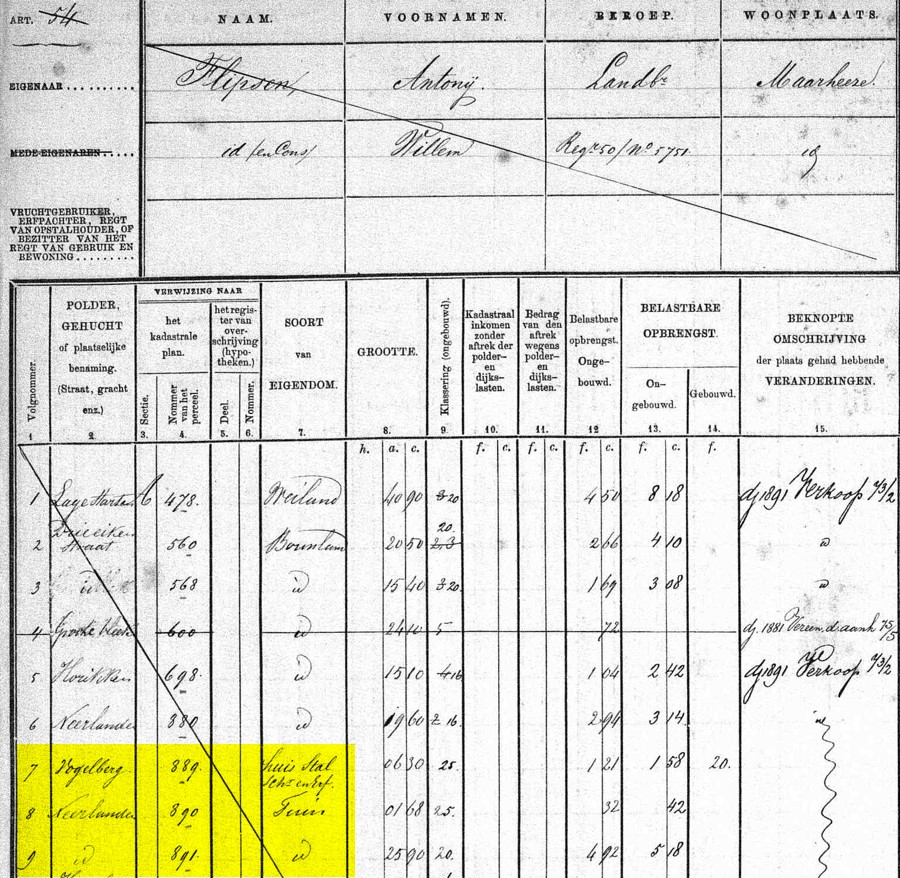 ART. 54
NAAM. VOORNAMEN. BEROEP. WOONPLAATS.
EIGENAAR.......... Flipsen, Antonij. Landbr Maarheeze.
MEDE-EIGENAREN..... id (en Cons) Willem Regr 50/No 5751 id
VRUCHTGEBRUIKER,
ERFPACHTER, REGT
VAN OPSTALHOUDER, OF
BEZITTER VAN HET
REGT VAN GEBRUIK EN
BEWONING.........
Volgnommer.
1
POLDER,
GEHUCHT
of plaatselijke
benaming.
(Straat, gracht
enz.)
2.
VERWIJZING NAAR
het
kadastrale
plan.
Sectie.
3.
Nommer
van het
perceel.
4.
het regis-
ter van
over-
schrijving
(hypo-
theken.)
Deel.
5.
Nommer.
6.
SOORT
van
EIGENDOM.
7.
GROOTTE.
8.
Klassering (ongebouwd).
9.
Kadastraal
inkomen
zonder
aftrek der
polder-
en
dijks-
lasten.
10.
Bedrag
van den
aftrek
wegens
polder-
en
dijks-
lasten.
11.
Belastbare
opbrengst.
Onge-
bouwd.
12
BELASTBARE
OPBRENGST.
On-
gebouwd.
13.
Gebouwd.
14.
BEKNOPTE
OMSCHRIJVING
der plaats gehad hebbende
VERANDERINGEN.
15.
h. a. c. f. c. f. c. f. c. f. f.
1 478. Weiland 40 90 3 20 4 50 8 18 dj 1891 Verkoop 73/2
2 Drieeiken Straat 560 Bouwland 20 50 2,3 20 2 66 4 10 "
3 id 568 id 15 40 3 20. 1 69 3 08 "
4 600 id 24 10 5 72 dj. 1881 75/5
5 698. id 15 10 4 16 1 04 2 42 dj 1891 Verkoop 73/2
6 Neerlanden 880 id 19 60 2 16. 2 94 3 14 id
7 Vogelberg 889. huis Stal Schr en Erf. 06 30 25. 1 21 1 58 20.
8 Neerlanden 890 Tuin 01 68 25. 32 42
9 id 891. id 25 90 20. 4 92 5 18